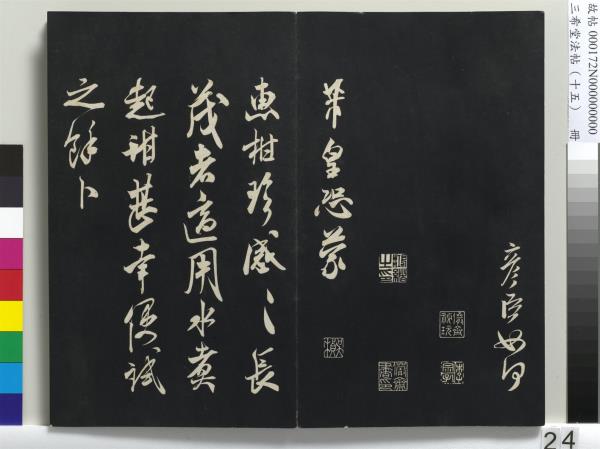 故帖 000172N000000000
三希堂法帖（十五） 冊
彥臣如何
芾皇恐蒙
惠柑珍感〻長
茂者適用水煮
起甜甚幸便試
之餘卜
24